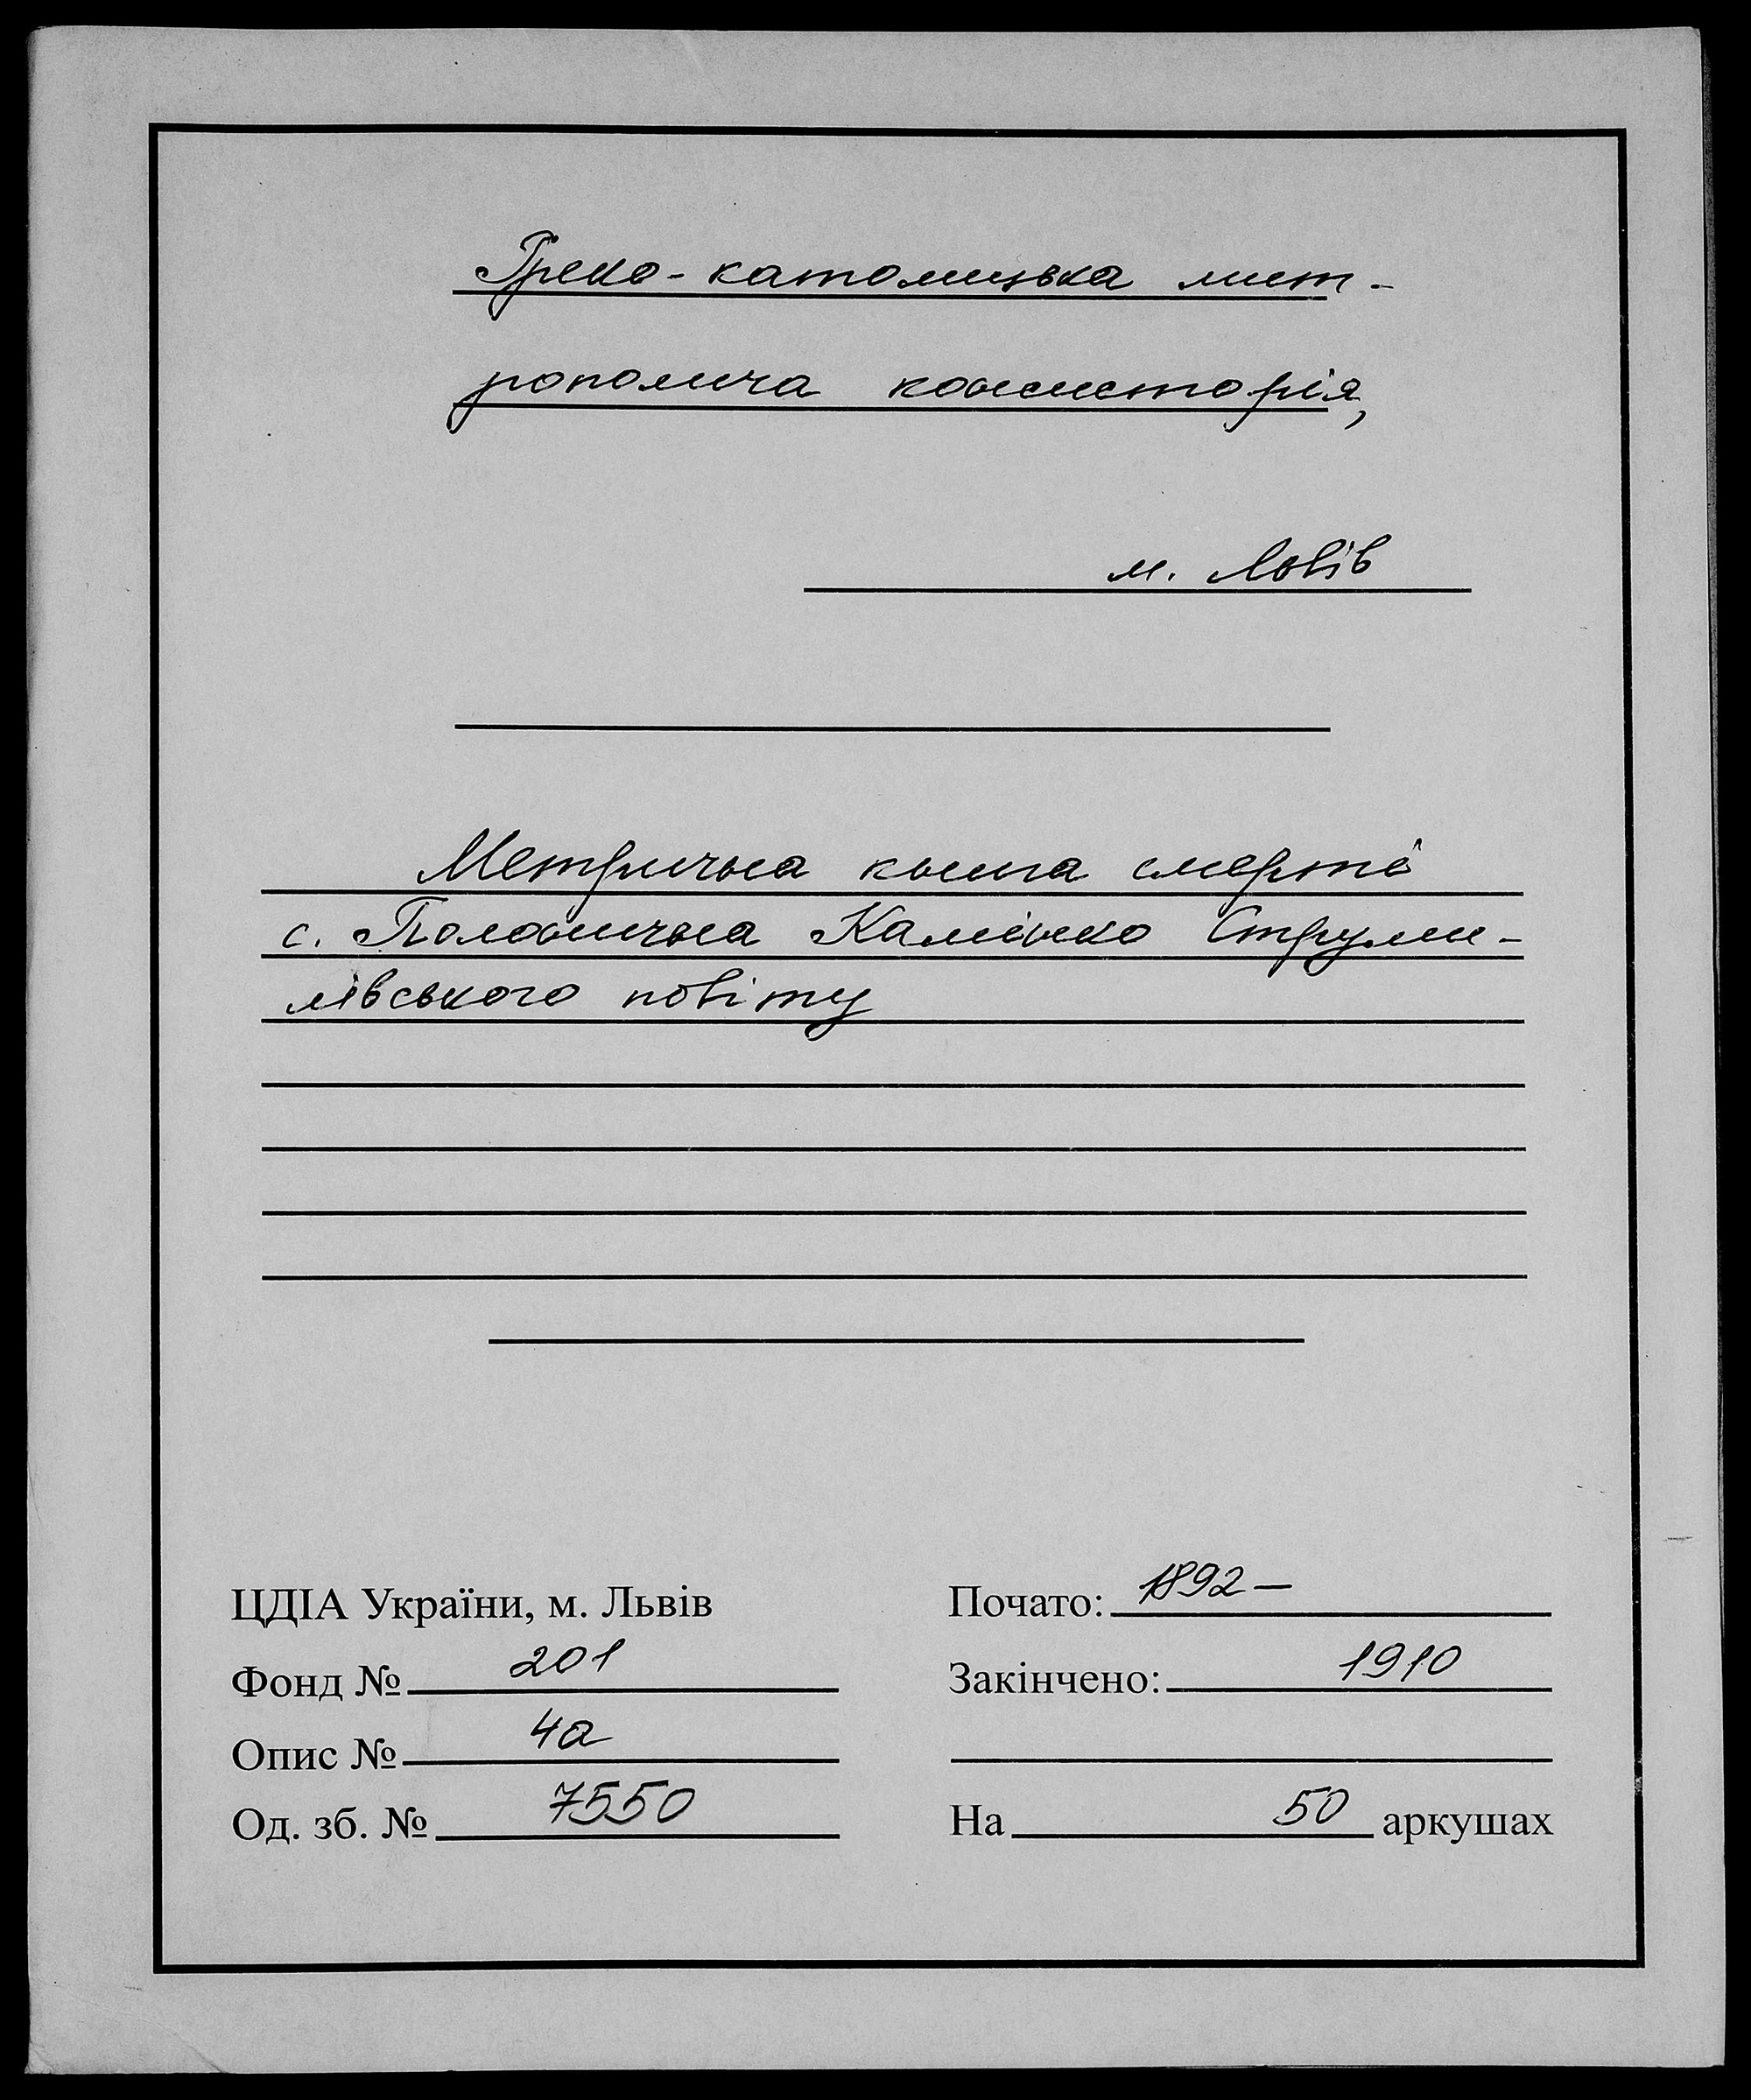 Греко-католицька мит-
рополича консисторія,
м. Львів
Метрична книга смерті
с. Полонична Камінко Струми-
лівського повіту
ЦДІА України, м. Львів
Фонд № 201
Опис № 4а
Од. зб. № 7550
Почато: 1892 –
Закінчено: 1910
На 50 аркушах